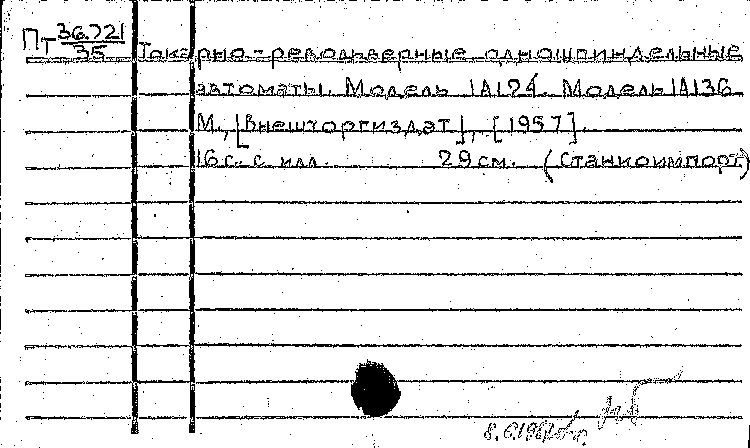 Пт 36.721/35 Токарно-револьверные одношпиндельные
автоматы. Модель 1А124. Модель 1А136
М., [Внешторгиздат], [1957].
16 с. с илл. 29 см. (Станкоимпорт)